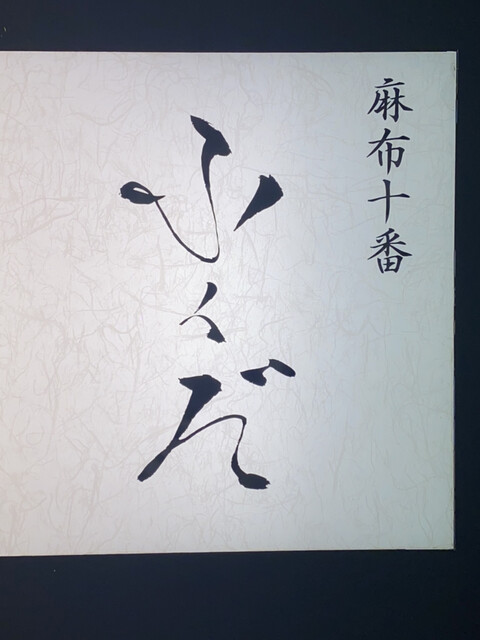 麻布十番
ふくだ